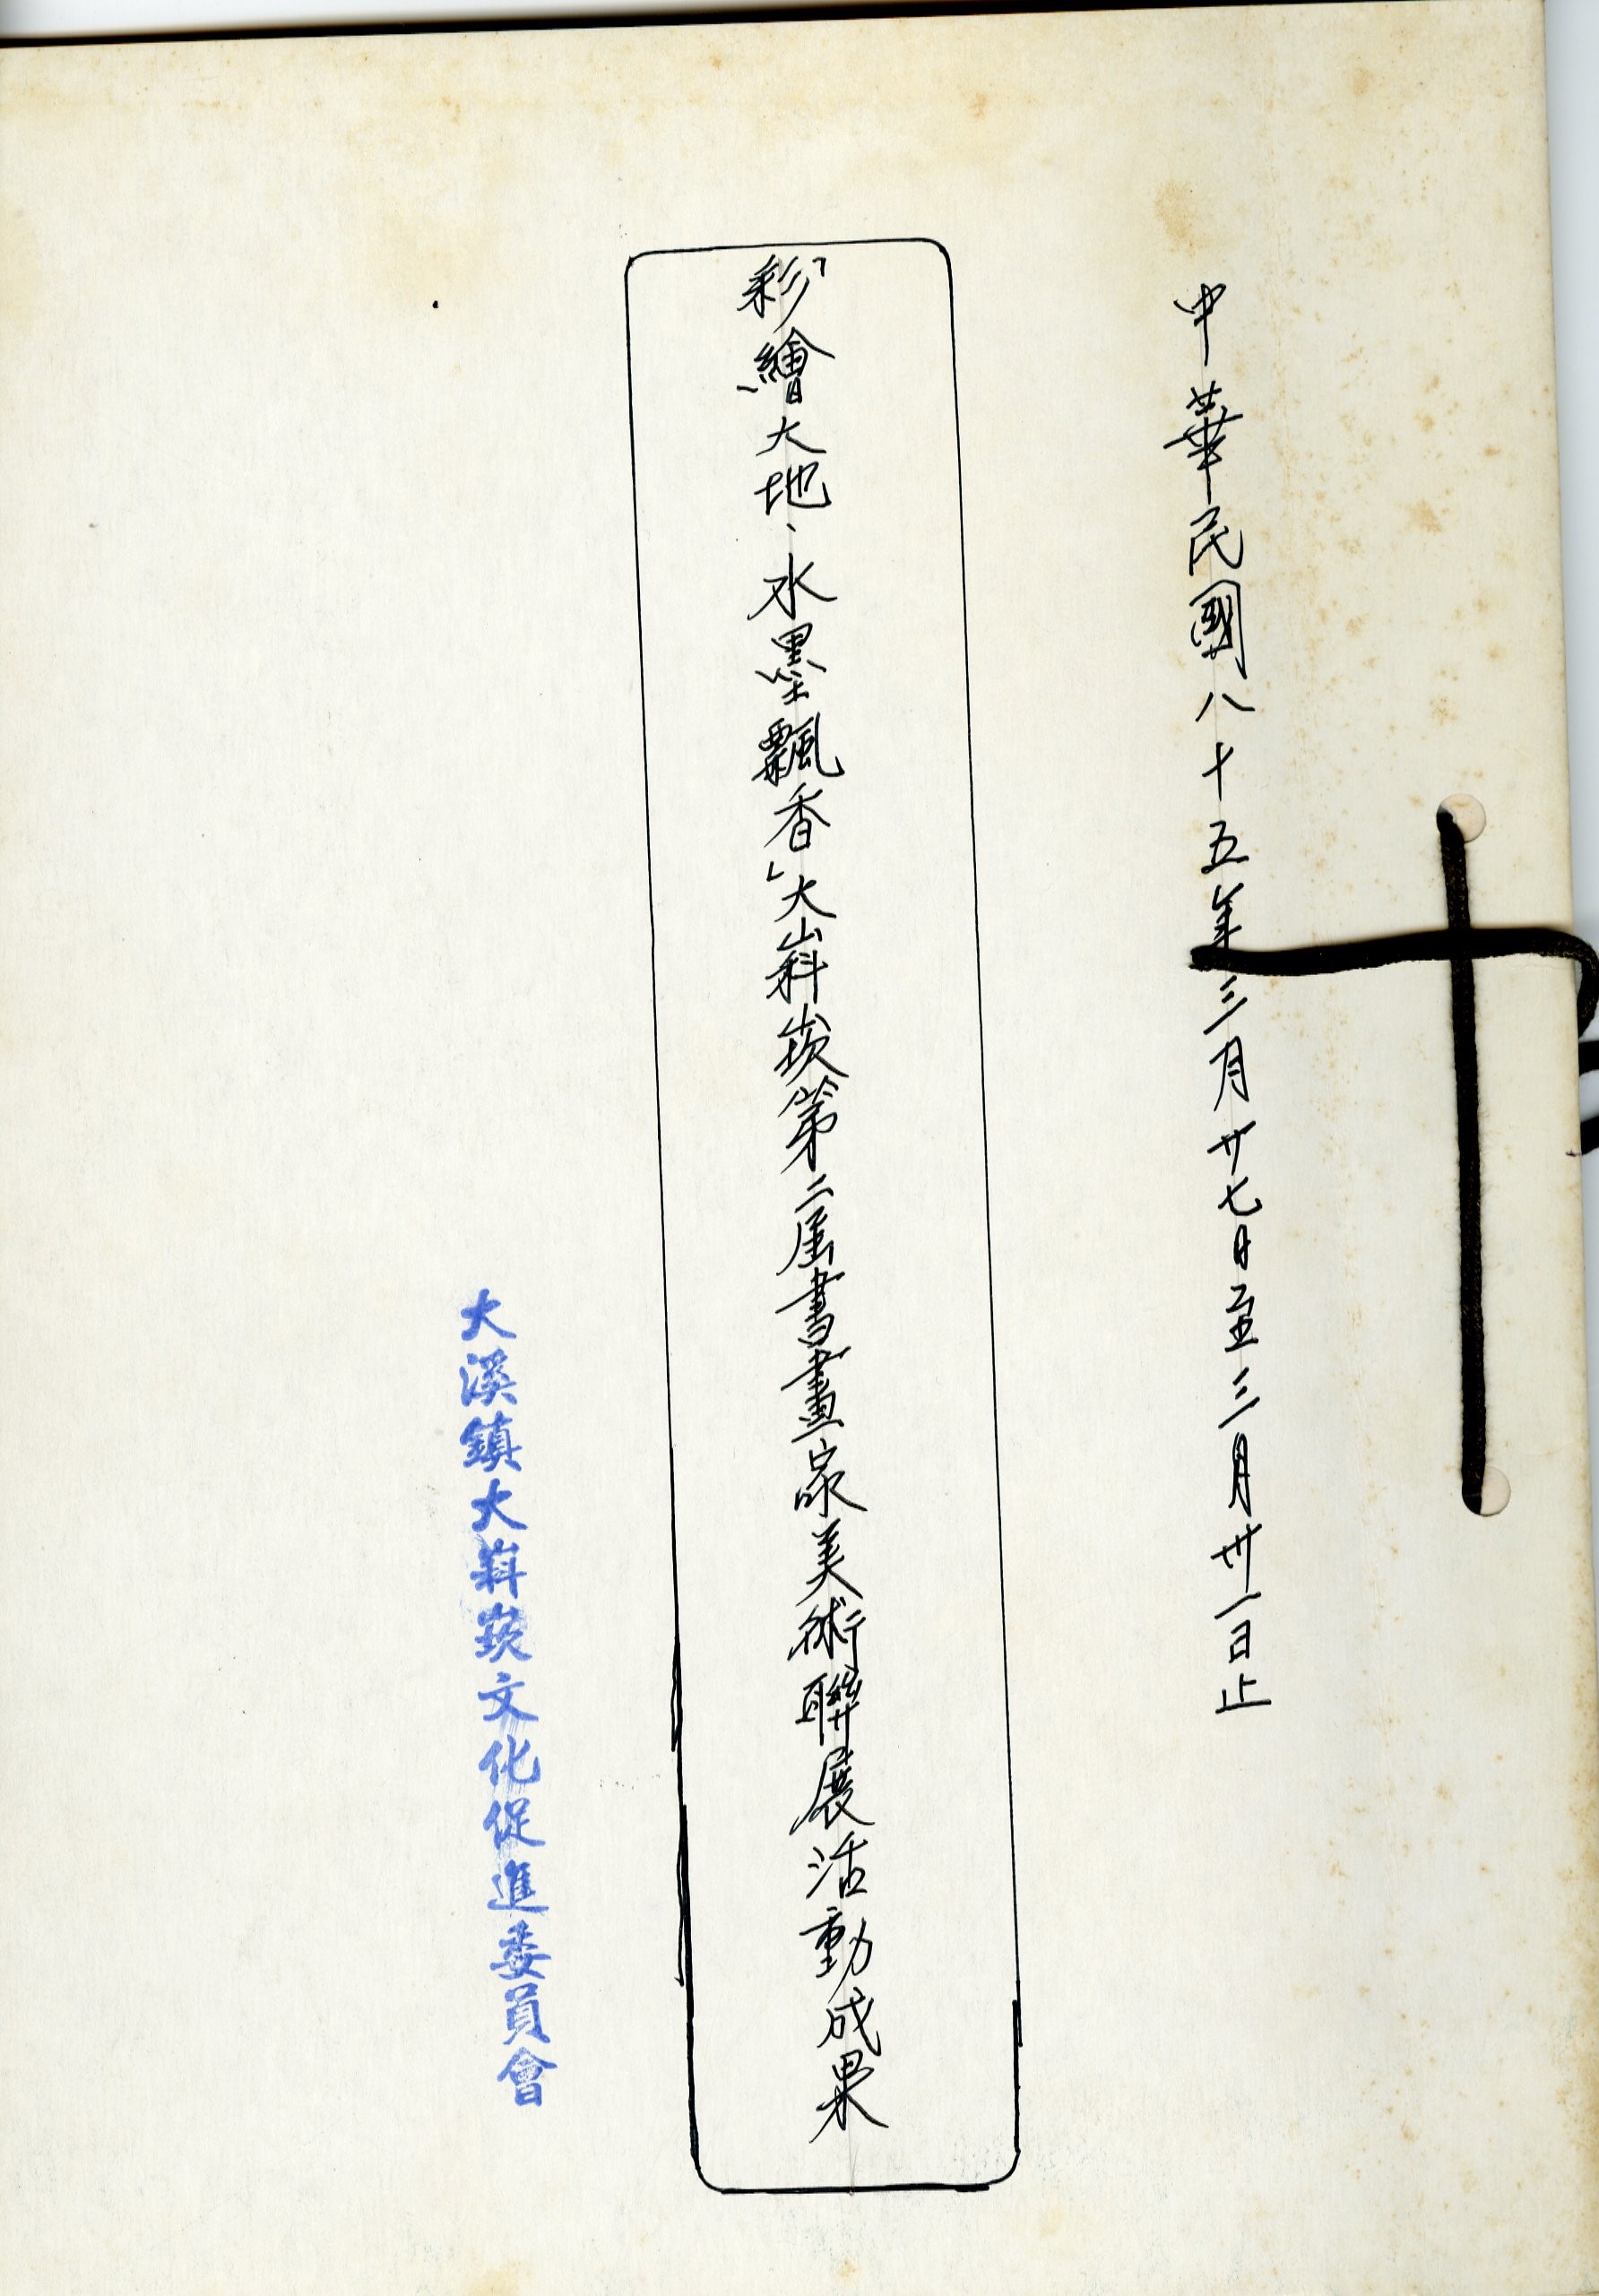 中華民國八十五年三月廿七日至三月卅一日止
「彩繪大地、水墨飄香」大嵙崁第二屆書畫家美術聯展活動成果
大溪鎮大嵙崁文化促進委員會